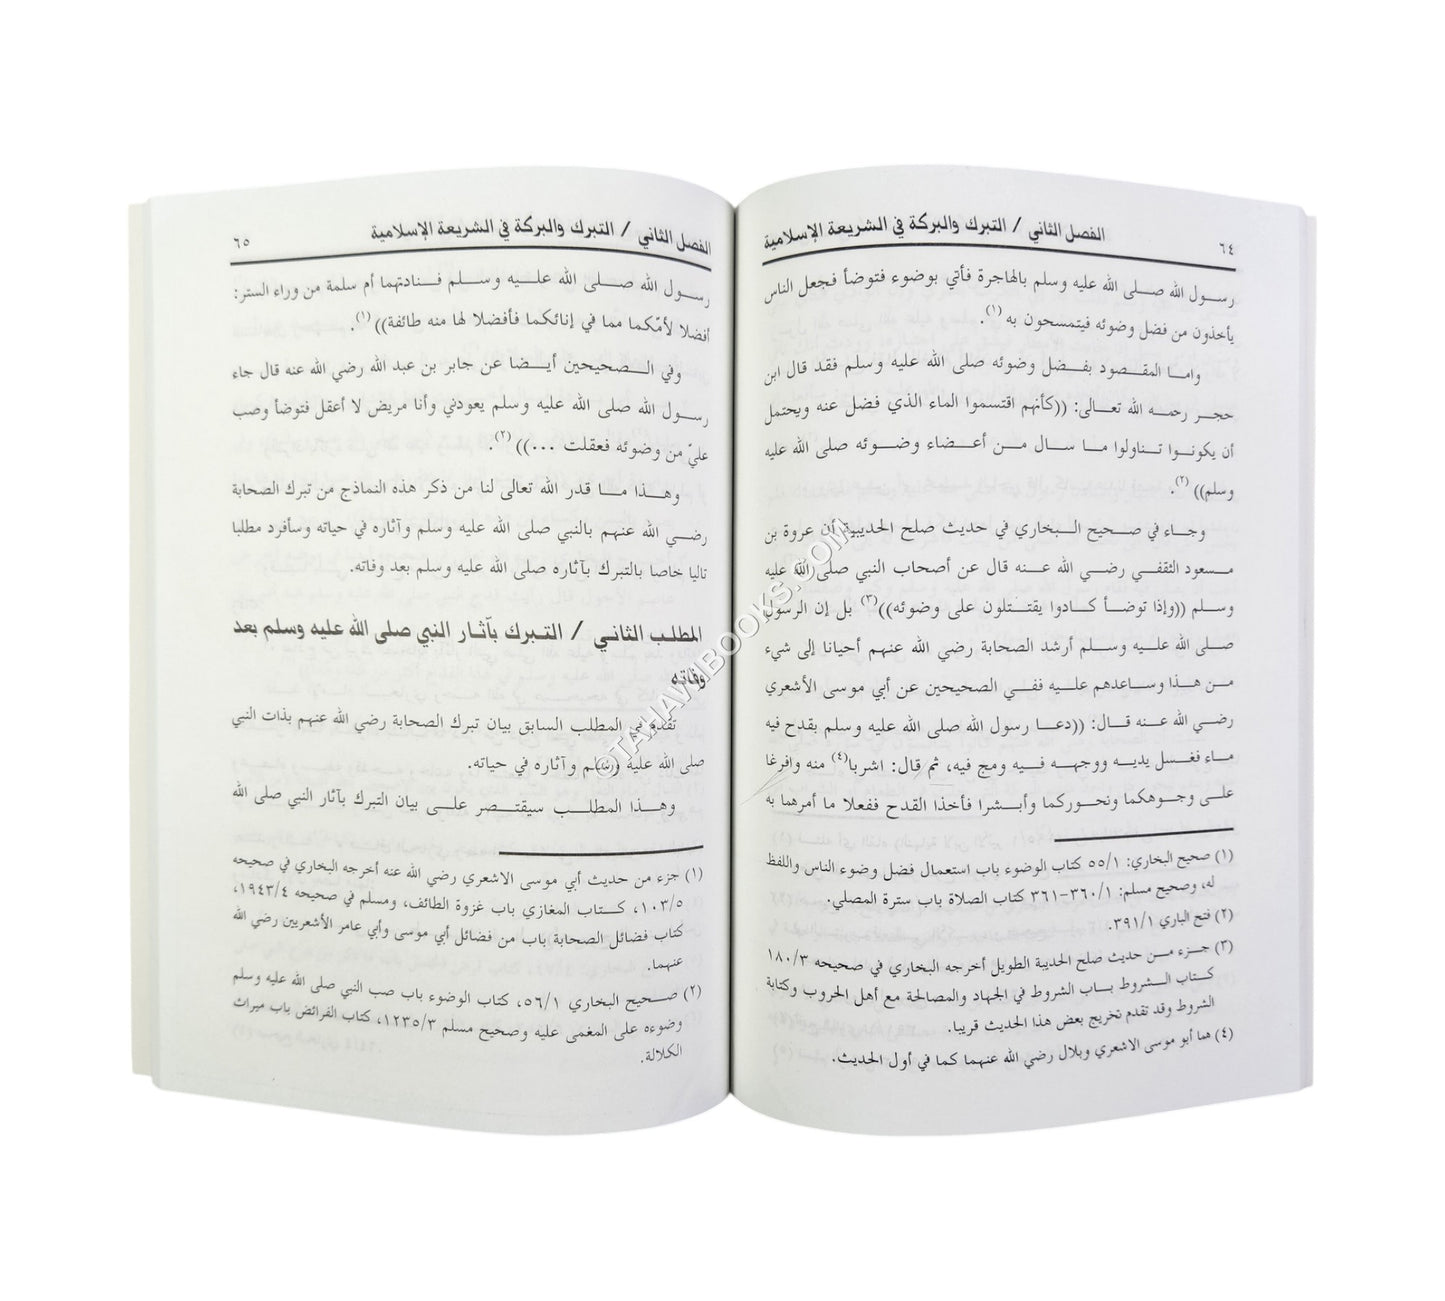 ٦٤
الفصل الثاني / التبرك والبركة في الشريعة الإسلامية
رسول الله صلى الله عليه وسلم بالهاجرة فأتي بوضوء فتوضأ فجعل الناس
يأخذون من فضل وضوئه فيتمسحون به (١).
واما المقصود بفضل وضوئه صلى الله عليه وسلم فقد قال ابن
حجر رحمه الله تعالى: ((كأنهم اقتسموا الماء الذي فضل عنه ويحتمل
أن يكونوا تناولوا ما سال من أعضاء وضوئه صلى الله عليه
وسلم)) (٢).
وجاء في صحيح البخاري في حديث صلح الحديبية أن عروة بن
مسعود الثقفي رضي الله عنه قال عن أصحاب النبي صلى الله عليه
وسلم ((وإذا توضأ كادوا يقتتلون على وضوئه)) (٣) بل إن الرسول
صلى الله عليه وسلم أرشد الصحابة رضي الله عنهم أحيانا إلى شيء
من هذا وساعدهم عليه ففي الصحيحين عن أبي موسى الأشعري
رضي الله عنه قال: ((دعا رسول الله صلى الله عليه وسلم بقدح فيه
ماء فغسل يديه ووجهه فيه ومج فيه، ثم قال: اشربا (٤) منه وافرغا
على وجوهكما ونحوركما وأبشرا فأخذا القدح ففعلا ما أمرهما به
(١) صحيح البخاري: ٥٥/١ كتاب الوضوء باب استعمال فضل وضوء الناس واللفظ
له، وصحيح مسلم: ٣٦٠/١-٣٦١ كتاب الصلاة باب سترة المصلي.
(٢) فتح الباري ٣٩١/١.
(٣) جزء من حديث صلح الحديبة الطويل أخرجه البخاري في صحيحه ١٨٠/٣
كتاب الشروط باب الشروط في الجهاد والمصالحة مع أهل الحروب وكتابة
الشروط وقد تقدم تخريج بعض هذا الحديث قريبا.
(٤) هما أبو موسى الاشعري وبلال رضي الله عنهما كما في أول الحديث.
الفصل الثاني / التبرك والبركة في الشريعة الإسلامية
٦٥
رسول الله صلى الله عليه وسلم فنادتهما أم سلمة من وراء الستر:
أفضلا لأمّكما مما في إنائكما فأفضلا لها منه طائفة)) (١).
وفي الصحيحين أيضا عن جابر بن عبد الله رضي الله عنه قال جاء
رسول الله صلى الله عليه وسلم يعودني وأنا مريض لا أعقل فتوضأ وصب
عليّ من وضوئه فعقلت ...)) (٢).
وهذا ما قدر الله تعالى لنا من ذكر هذه النماذج من تبرك الصحابة
رضي الله عنهم بالنبي صلى الله عليه وسلم وآثاره في حياته وسأفرد مطلبا
تاليا خاصا بالتبرك بآثاره صلى الله عليه وسلم بعد وفاته.
المطلب الثاني / التبرك بآثار النبي صلى الله عليه وسلم بعد
وفاته
تقدم في المطلب السابق بيان تبرك الصحابة رضي الله عنهم بذات النبي
صلى الله عليه وسلم وآثاره في حياته.
وهذا المطلب سيقتصر على بيان التبرك بآثار النبي صلى الله
(١) جزء من حديث أبي موسى الاشعري رضي الله عنه أخرجه البخاري في صحيحه
١٠٣/٥، كتاب المغازي باب غزوة الطائف، ومسلم في صحيحه ١٩٤٣/٤،
كتاب فضائل الصحابة باب من فضائل أبي موسى وأبي عامر الأشعريين رضي الله
عنهما.
(٢) صحيح البخاري ٥٦/١، كتاب الوضوء باب صب النبي صلى الله عليه وسلم
وضوءه على المغمى عليه وصحيح مسلم ١٢٣٥/٣، كتاب الفرائض باب ميراث
الكلالة.
©TAHAVIBOOKS.COM